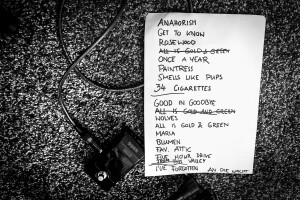 ANABORISM
GET TO KNOW
ROSEWOOD
ALL IS GOLD & GREEN
ONCE A YEAR
PAINTRESS
SMELLS LIKE PUPS
34 CIGARETTES
GOOD IN GOODBYE
ALL IS GOLD AND GREEN
WOLVES
ALL IS GOLD & GREEN
MARIA
BLUMEN
FAV. ATTIC
FIVE HOUR DRIVE
FROM THIS VALLEY
I'VE FORGOTTEN
AN DIE NACHT